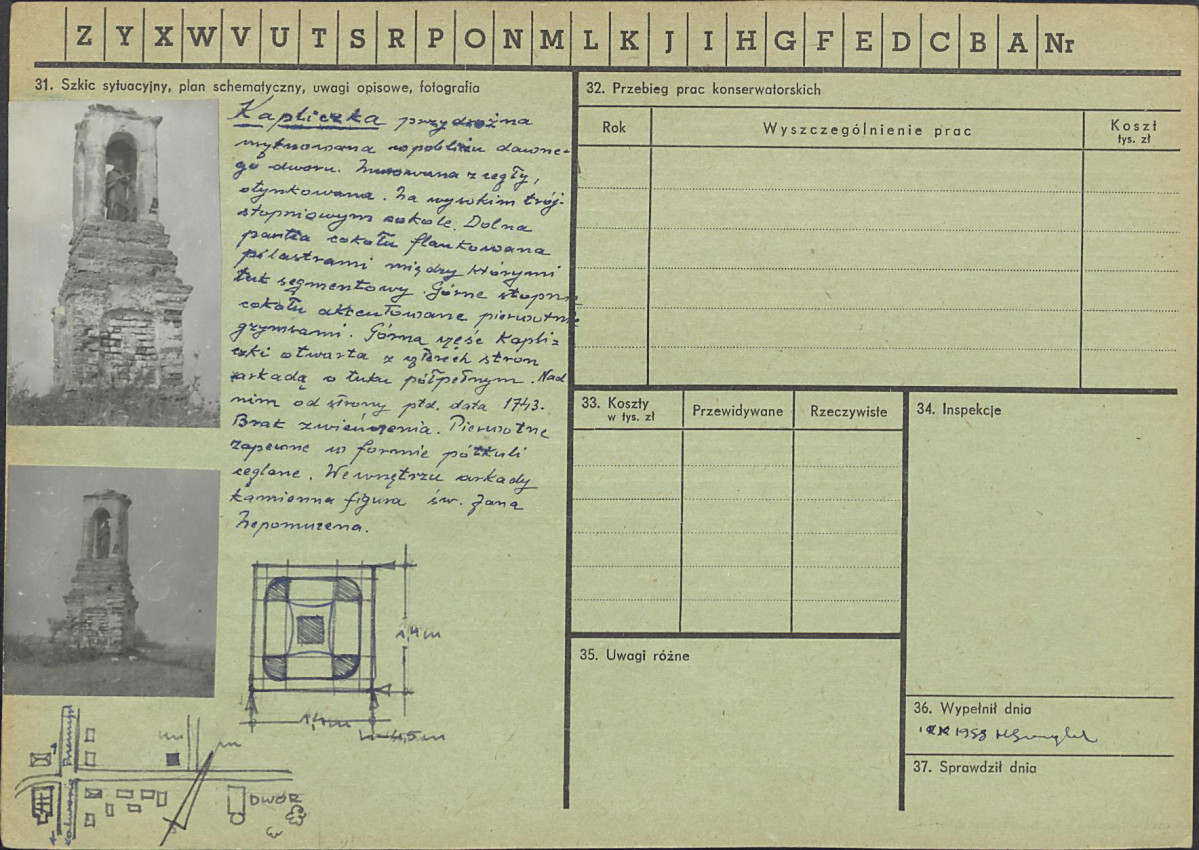 Z Y X W V U T S R P O N M L K J I H G F E D C B A Nr
31. Szkic sytuacyjny, plan schematyczny, uwagi opisowe, fotografia
Kapliczka przydrożna
wytnowana w pobliżu dawne-
go dworu. Murowana z cegły,
otynkowana. Na wysokim trój-
stopniowym cokole. Dolna
partia cokołu flankowana
pilastrami między którymi
łuk segmentowy. Górne stopnie
cokołu akcentowane pierwotnie
gzymsami. Górna część Kapli-
czki otwarta z czterech stron
arkadą o łuku półpełnym. Nad
nim od strony płd. data 1743.
Brak zwieńczenia. Pierwotne
zapewne w formie półkuli
ceglane. We wnętrzu arkady
kamienna figura św. Jana
Nepomucena.
1,4 m
1,4 m
h-4,5 m
DWÓR
32. Przebieg prac konserwatorskich
Rok
Wyszczególnienie prac
Koszt
tys. zł
33. Koszty
w tys. zł
Przewidywane
Rzeczywiste
34. Inspekcje
35. Uwagi różne
36. Wypełnił dnia
1958
37. Sprawdził dnia